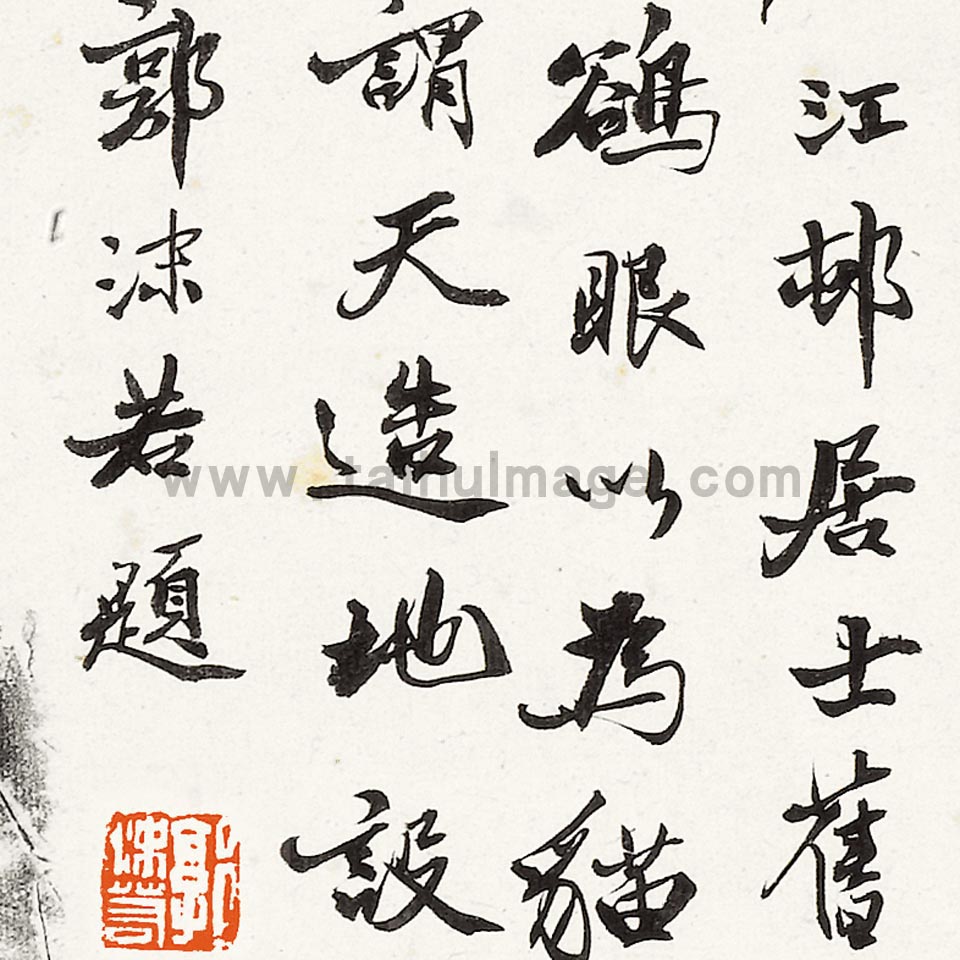 江邨居士舊
鶴眼以為貓
謂天造地設
郭沫若題
郭沫若